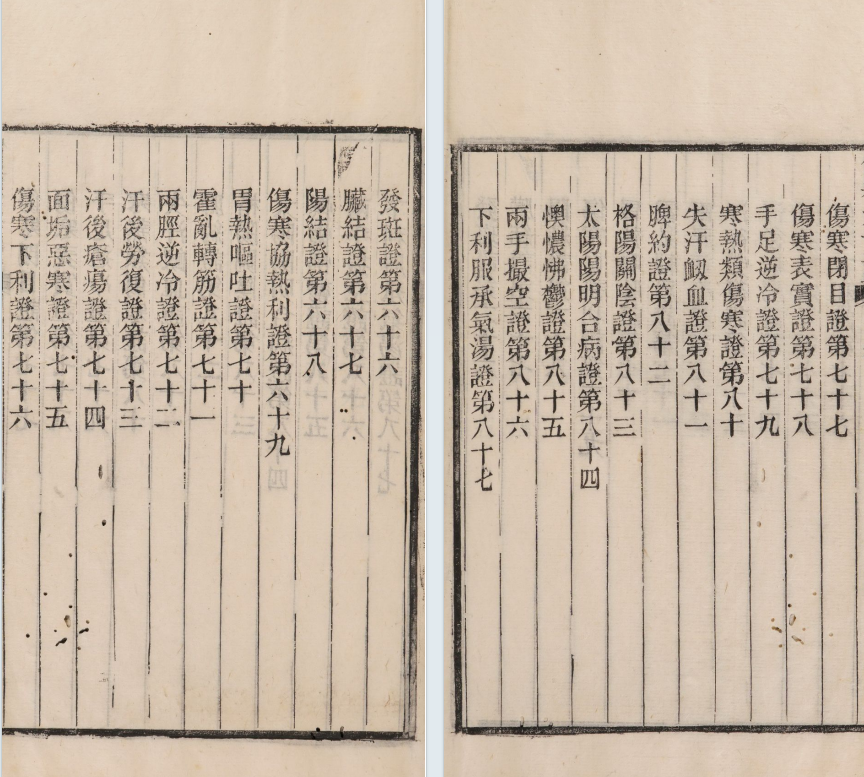 發斑證第六十六
臟結證第六十七
陽結證第六十八
傷寒協熱利證第六十九
胃熱嘔吐證第七十
霍亂轉筋證第七十一
兩脛逆冷證第七十二
汗後勞復證第七十三
汗後瘡瘍證第七十四
面垢惡寒證第七十五
傷寒下利證第七十六
傷寒閉目證第七十七
傷寒表實證第七十八
手足逆冷證第七十九
寒熱類傷寒證第八十
失汗衂血證第八十一
脾約證第八十二
格陽關陰證第八十三
太陽陽明合病證第八十四
懊憹怫鬱證第八十五
兩手撮空證第八十六
下利服承氣湯證第八十七